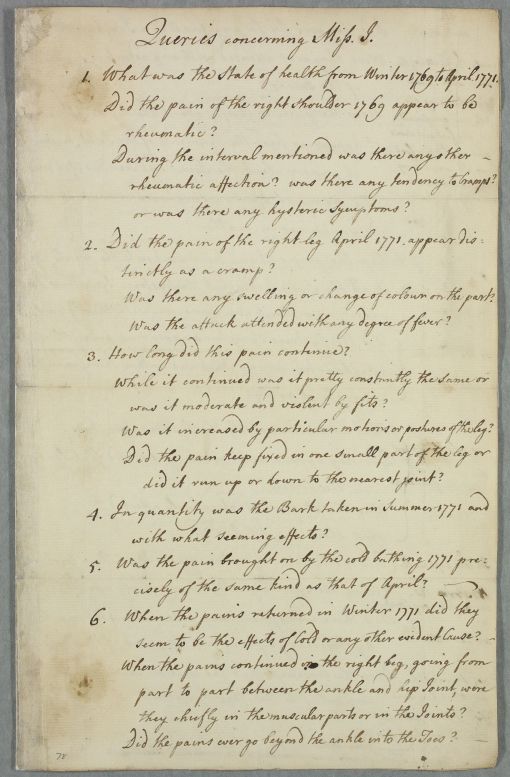 Queries concerning Miss. J.
1. What was the State of health from Winter 1769 to April 1771.
Did the pain of the right shoulder 1769 appear to be
rheumatic?
During the interval mentioned was there any other
rheumatic affection? was there any tendency to Cramps?
or was there any hysteric symptoms?
2. Did the pain of the right leg April 1771. appear dis:
tinctly as a cramp?
Was there any swelling or change of colour on the part?
Was the attack attended with any degree of fever?
3. How long did this pain continue?
While it continued was it pretty constantly the same or
was it moderate and violent by fits?
Was it increased by particular motions or postures of the leg?
Did the pain keep fixed in one small part of the leg or
did it run up or down to the nearest joint?
4. In quantity was the Bark taken in Summer 1771 and
with what seeming effects?
5. Was the pain brought on by the cold bathing 1771 pre:
cisely of the same kind as that of April?
6. When the pains returned in Winter 1771 did they
seem to be the effects of Cold or any other evident Cause?
When the pains continued in the right leg, going from
part to part between the ankle and hip Joint, were
they chiefly in the muscular parts or in the Joints?
Did the pains ever go beyond the ankle into the Toes?
78